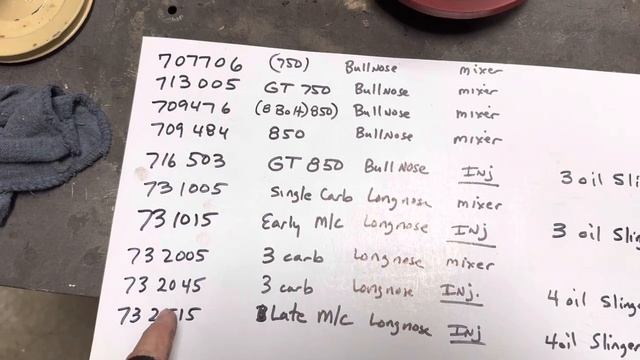 707706 (750) Bullnose mixer
713005 GT 750 Bullnose mixer
709476 (8 Bolt) 850) Bullnose mixer
709 484 850 Bullnose mixer
716 503 GT 850 Bullnose Inj 3 oil Sling
731005 Single Carb Longnose mixer
731015 Early M/c Longnose INj 3 oil Sling
732005 3 carb Longnose mixer
732045 3 carb Longnose INj. 4 oil Slinger
Late M/c Longnose INj 4oil Slinger